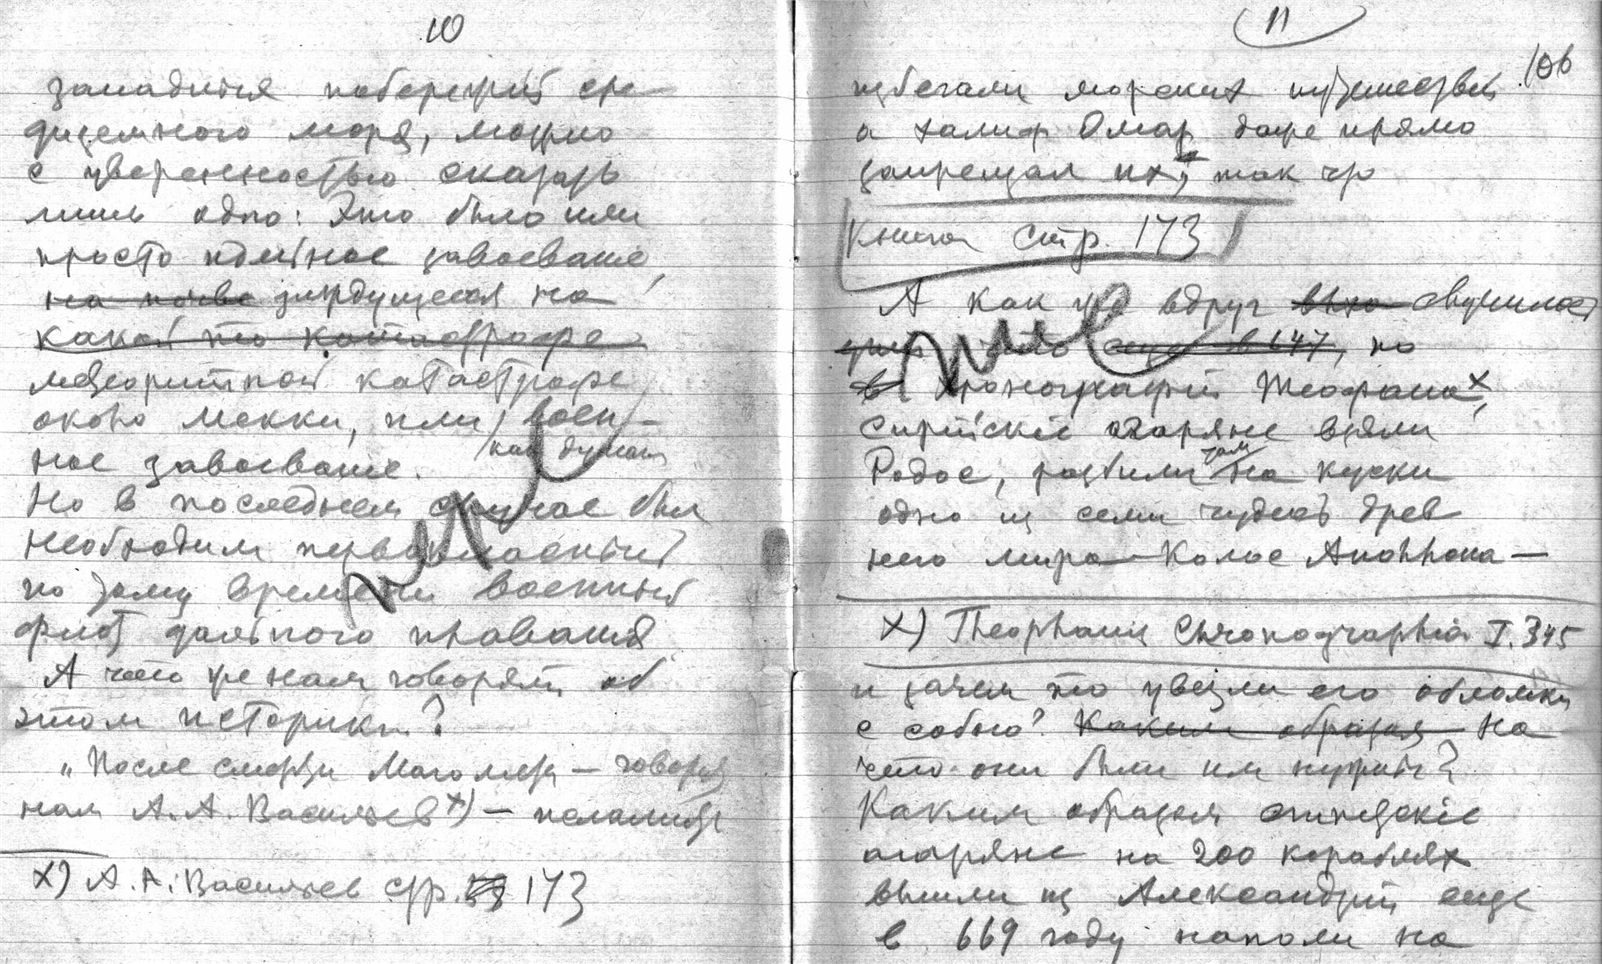 10
западныя побережiй сре-
диземного моря, можно
с уверенностью сказать
лишь одно: Это было или
просто идейное завоеванiе,
на почве зиждущееся на
какой то катастрофе
метеоритной катастрофе
около Мекки, или воен-
ное завоеванiе. /как думают
Но в последнем случае был
необходим первоклассный
по тому времени военный
флот дальнего плаванiя
А что же нам говорят об
этом историки?
„После смерти Магомета — говорит
нам А. А. Васильев х) — исламиты
х) А. А. Васильев стр. 173
11
106
избегали морских путешествiй
а халиф Омар даже прямо
запрещал их, так что
Книга стр. 173
А как же вдруг случилось
что еще в 647, по
в Хронографiи Теофана х,
Сирiйскiе агаряне взяли
Родос, разбили там на куски
одно из семи чудес древ
него мира — Колос Аполлона —
х) Theophanis Chronographia I. 345
и зачем то увезли его обломки
с собою? Каким образом На
что они были им нужны?
Каким образом египетскiе
агаряне на 200 кораблях
вышли из Александрiи еще
в 669 году напали на